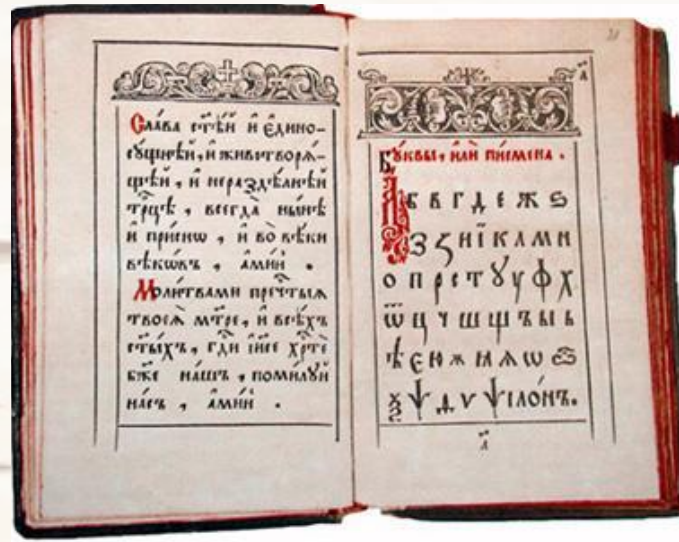 Сла́ва ст҃ѣ́й и҆ є҆дино-
сꙋ́щнѣй, и҆ животворѧ́-
щей, и҆ нераздѣ́лнѣй
трⷪ҇цѣ, всегда̀ ны́нѣ
и҆ при́снѡ, и҆ во̀ вѣ́ки
вѣкѡ́въ, а҆ми́нь.
Мол҃и́твами пречⷭ҇тыѧ
твоеѧ̀ мт҃ре, и҆ всѣ́хъ
ст҃ы́хъ, гдⷭ҇и і҆и҃се хрⷭ҇тѐ
бж҃е на́шъ, поми́лꙋй
на́съ, а҆ми́нь.
Бꙋ́квы, и҆лѝ пи́смена.
А Б В Г Д Е Ж Ѕ
З Ꙁ И Ї К Л М Н
О П Р С Т Ꙋ У Ф Х
Ѿ Ц Ч Ш Щ Ъ Ы Ь
Ѣ Є Ю Ѫ Ꙗ Ѧ Ѡ
Ѯ Ѱ Ѵ